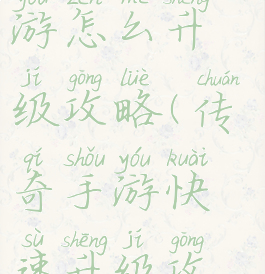 yóu zěn me shēng
游怎么升
jí gōng lüè chuán
级攻略(传
qí shǒu yóu kuài
奇手游快
sù shēng jí gōng
速升级攻